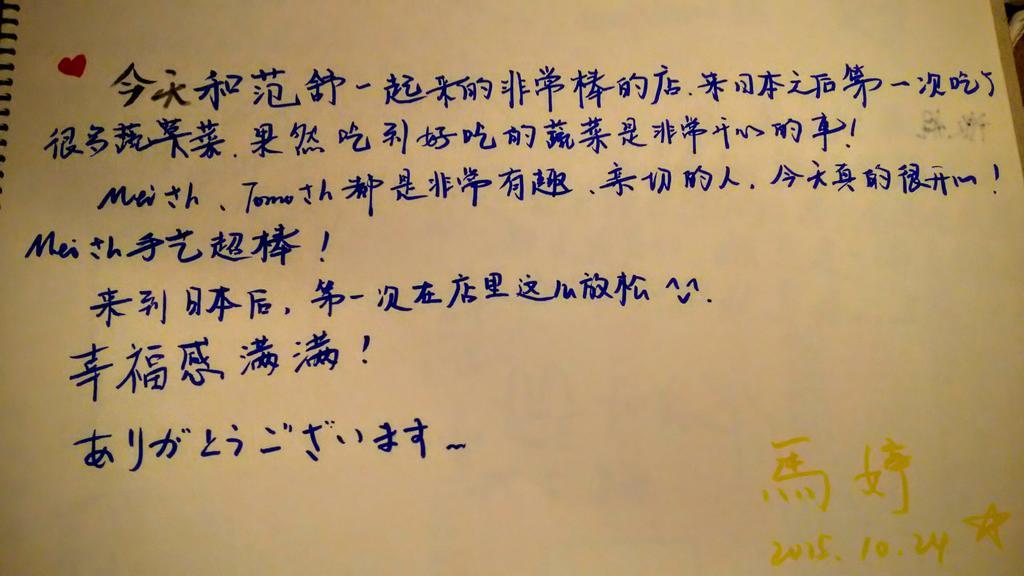 今天和范舒一起来的非常棒的店.来日本之后第一次吃了
很多蔬菜.果然吃到好吃的蔬菜是非常开心的事!
Meiさん、Tomoさん都是非常有趣、亲切的人.今天真的很开心!
Meiさん手艺超棒!
来到日本后,第一次在店里这么放松^ᴗ^.
幸福感满满!
ありがとうございます~
馬婷
2015.10.24